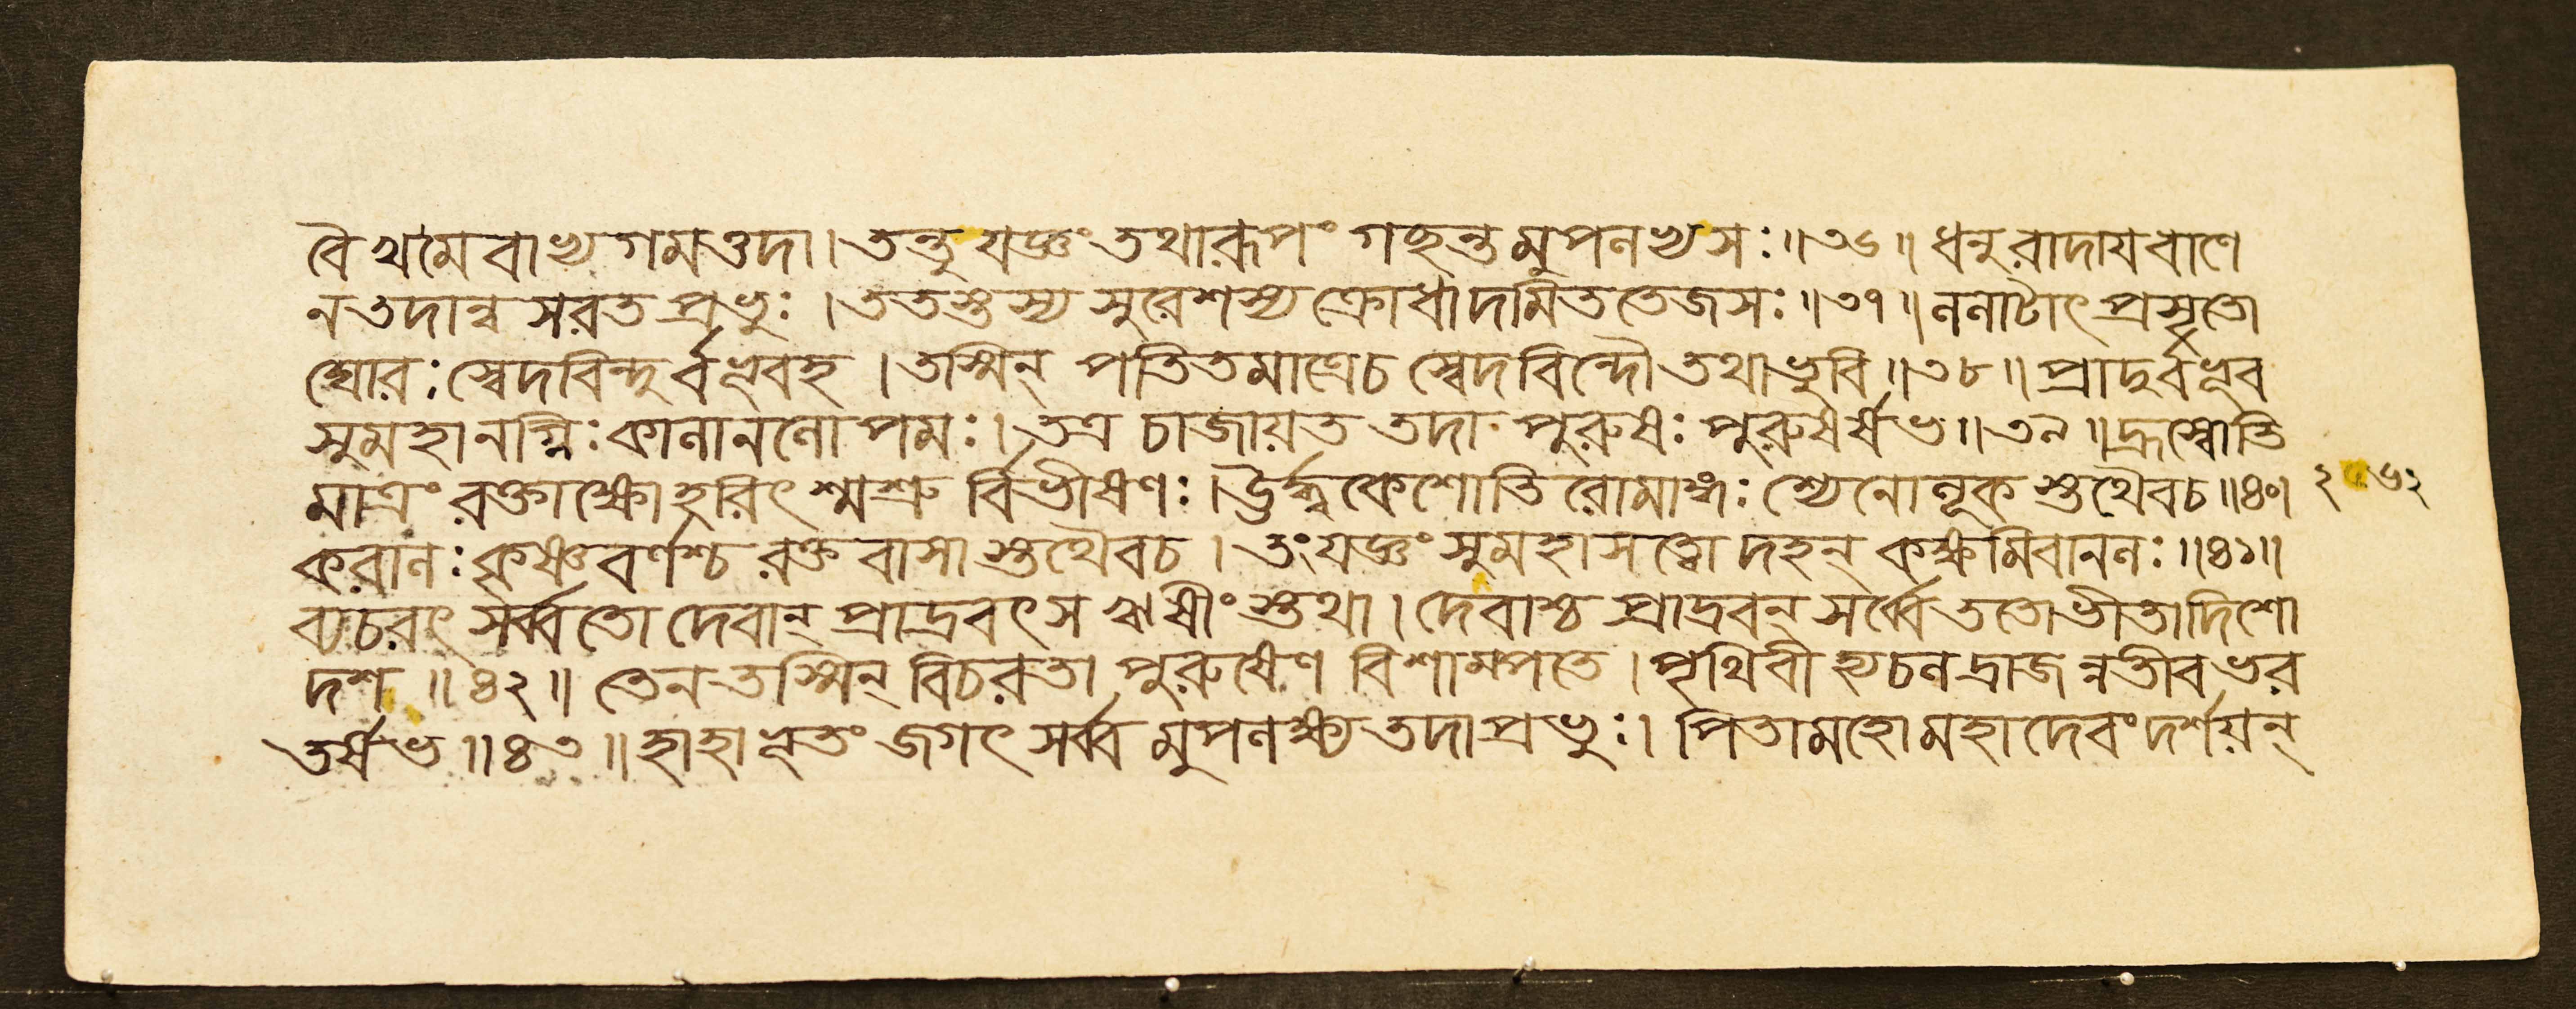 বৈ খমে বাভ্য গমত্তদা। তন্তু যজ্ঞং তথারূপং গছন্ত মুপলভ্য সঃ॥৩৬॥ ধনুরাদায বাণে
ন তদান্ব সরত প্রভুঃ। ততস্তস্য সুরেশস্য ক্রোধাদমিত তেজসঃ॥৩৭॥ ললাটাৎ প্রসৃতো
ঘোরঃ স্বেদবিন্দুর্বভূবহ। তস্মিন্ পতিতমাত্রেচ স্বেদবিন্দৌ তথাভুবি॥৩৮॥ প্রাদুর্বভূব
সুমহানগ্নিঃ কালানলোপমঃ। তত্র চাজায়ত তদা পুরুষঃ পুরুষর্ষভ॥৩৯॥ হ্রস্বোতি
মাত্রং রক্তাক্ষোহরিৎ শ্মশ্রু র্বিভীষণঃ। ঊর্দ্ধ্বকেশোতি রোমাঙ্গঃ শ্যেনোলূক স্তথৈবচ॥৪০।
করালঃ কৃষ্ণবর্ণশ্চ রক্ত বাসাস্তথৈবচ। তং যজ্ঞং সুমহাসত্বো দহন্ কক্ষমিবানলঃ॥৪১॥
ব্যচরৎ সর্ব্বতো দেবান্ প্রাদ্রবৎ স ঋষীংস্তথা। দেবাশ্চ প্রাদ্রবন্ সর্ব্বে ততোভীতাদিশো
দশ॥৪২॥ তেন তস্মিন্ বিচরতা পুরুষেণ বিশাম্পতে। পৃথিবী হ্যচলদ্রাজন্নতীব ভর
তর্ষভ॥৪৩॥ হাহাভূতং জগৎ সর্ব্ব মুপলক্ষ্য তদাপ্রভুঃ। পিতামহোমহাদেবং দর্শয়ন্